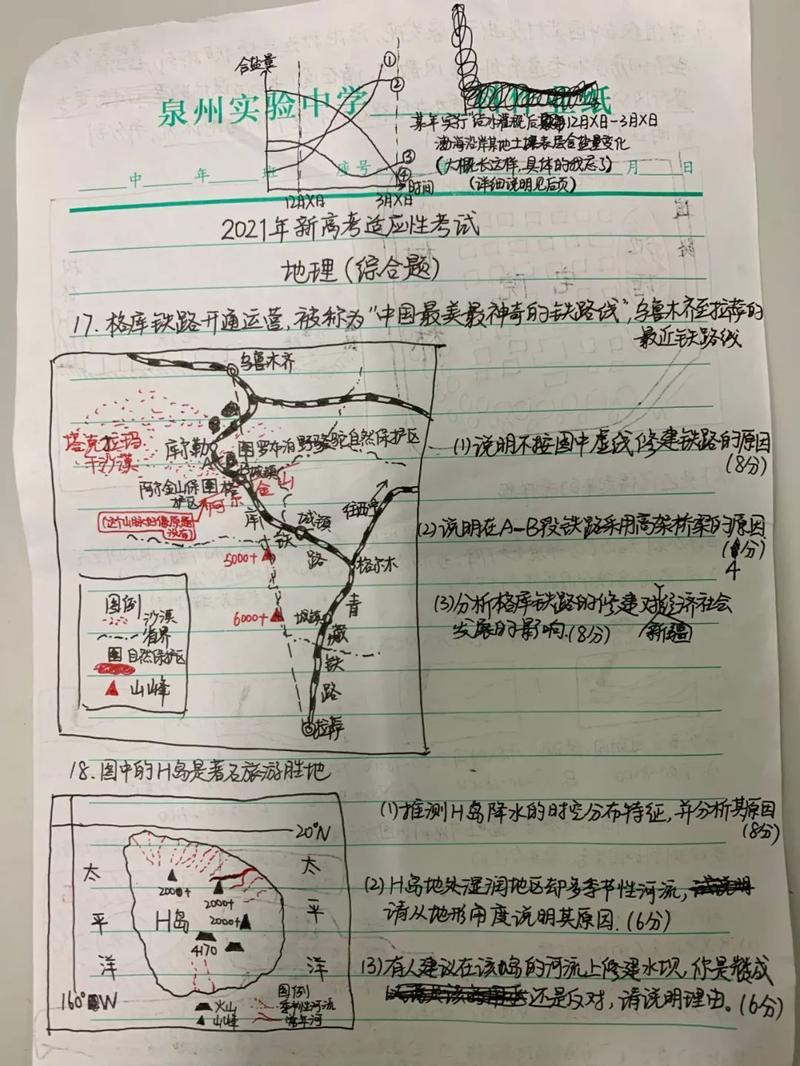 含盐量
①
②
③
④
时间
12月X日
3月X日
泉州实验中学
纸
某年实行"咸水灌溉后12月X日-3月X日
渤海沿岸某地土壤表层含盐量变化
(大概长这样,具体的我忘了)
(详细说明见后页)
中 年 班 座号 月 日
2021年新高考适应性考试
地理(综合题)
17.格库铁路开通运营,被称为"中国最美最神奇的铁路线",乌鲁木齐至拉萨的
最近铁路线
乌鲁木齐
塔克拉玛
干沙漠
库尔勒
图罗布泊野骆驼自然保护区
A
B
城镇
阿尔金山保图
护区
格
阿尔金山
(这个山脉好像原题
没有)
库
铁
路
城镇
往西宁
格尔木
5000+
6000+
城镇
青
藏
铁
路
拉萨
图例
沙漠
省界
图自然保护区
山峰
(1)说明不按图中虚线修建铁路的原因
(8分)
(2)说明在A-B段铁路采用高架桥梁的原因
(4分)
(3)分析格库铁路的修建对新疆经济社会
发展的影响.(8分)
18.图中的H岛是著名旅游胜地
20°N
太
平
洋
太
平
洋
2000+
2000+
2000+
H岛
4170
160°W
图例
火山
季节性河流
山峰
常年河
(1)推测H岛降水的时空分布特征,并分析其原因
(8分)
(2)H岛地处湿润地区却多季节性河流,
请从地形角度说明其原因.(6分)
(3)有人建议在该岛的河流上修建水坝,你是赞成
还是反对,请说明理由。(6分)